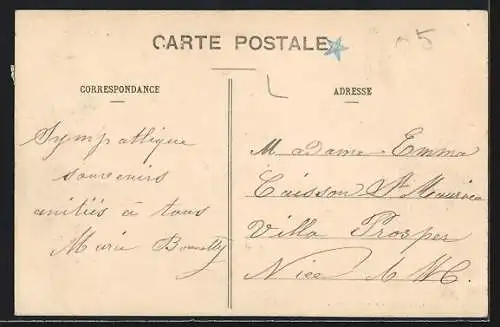 CARTE POSTALE
CORRESPONDANCE
ADRESSE
Sympathique
souvenirs
amitiés à tous
Marie
Madame Emma
Caisson St Maurice
Villa Prosper
Nice A. M.